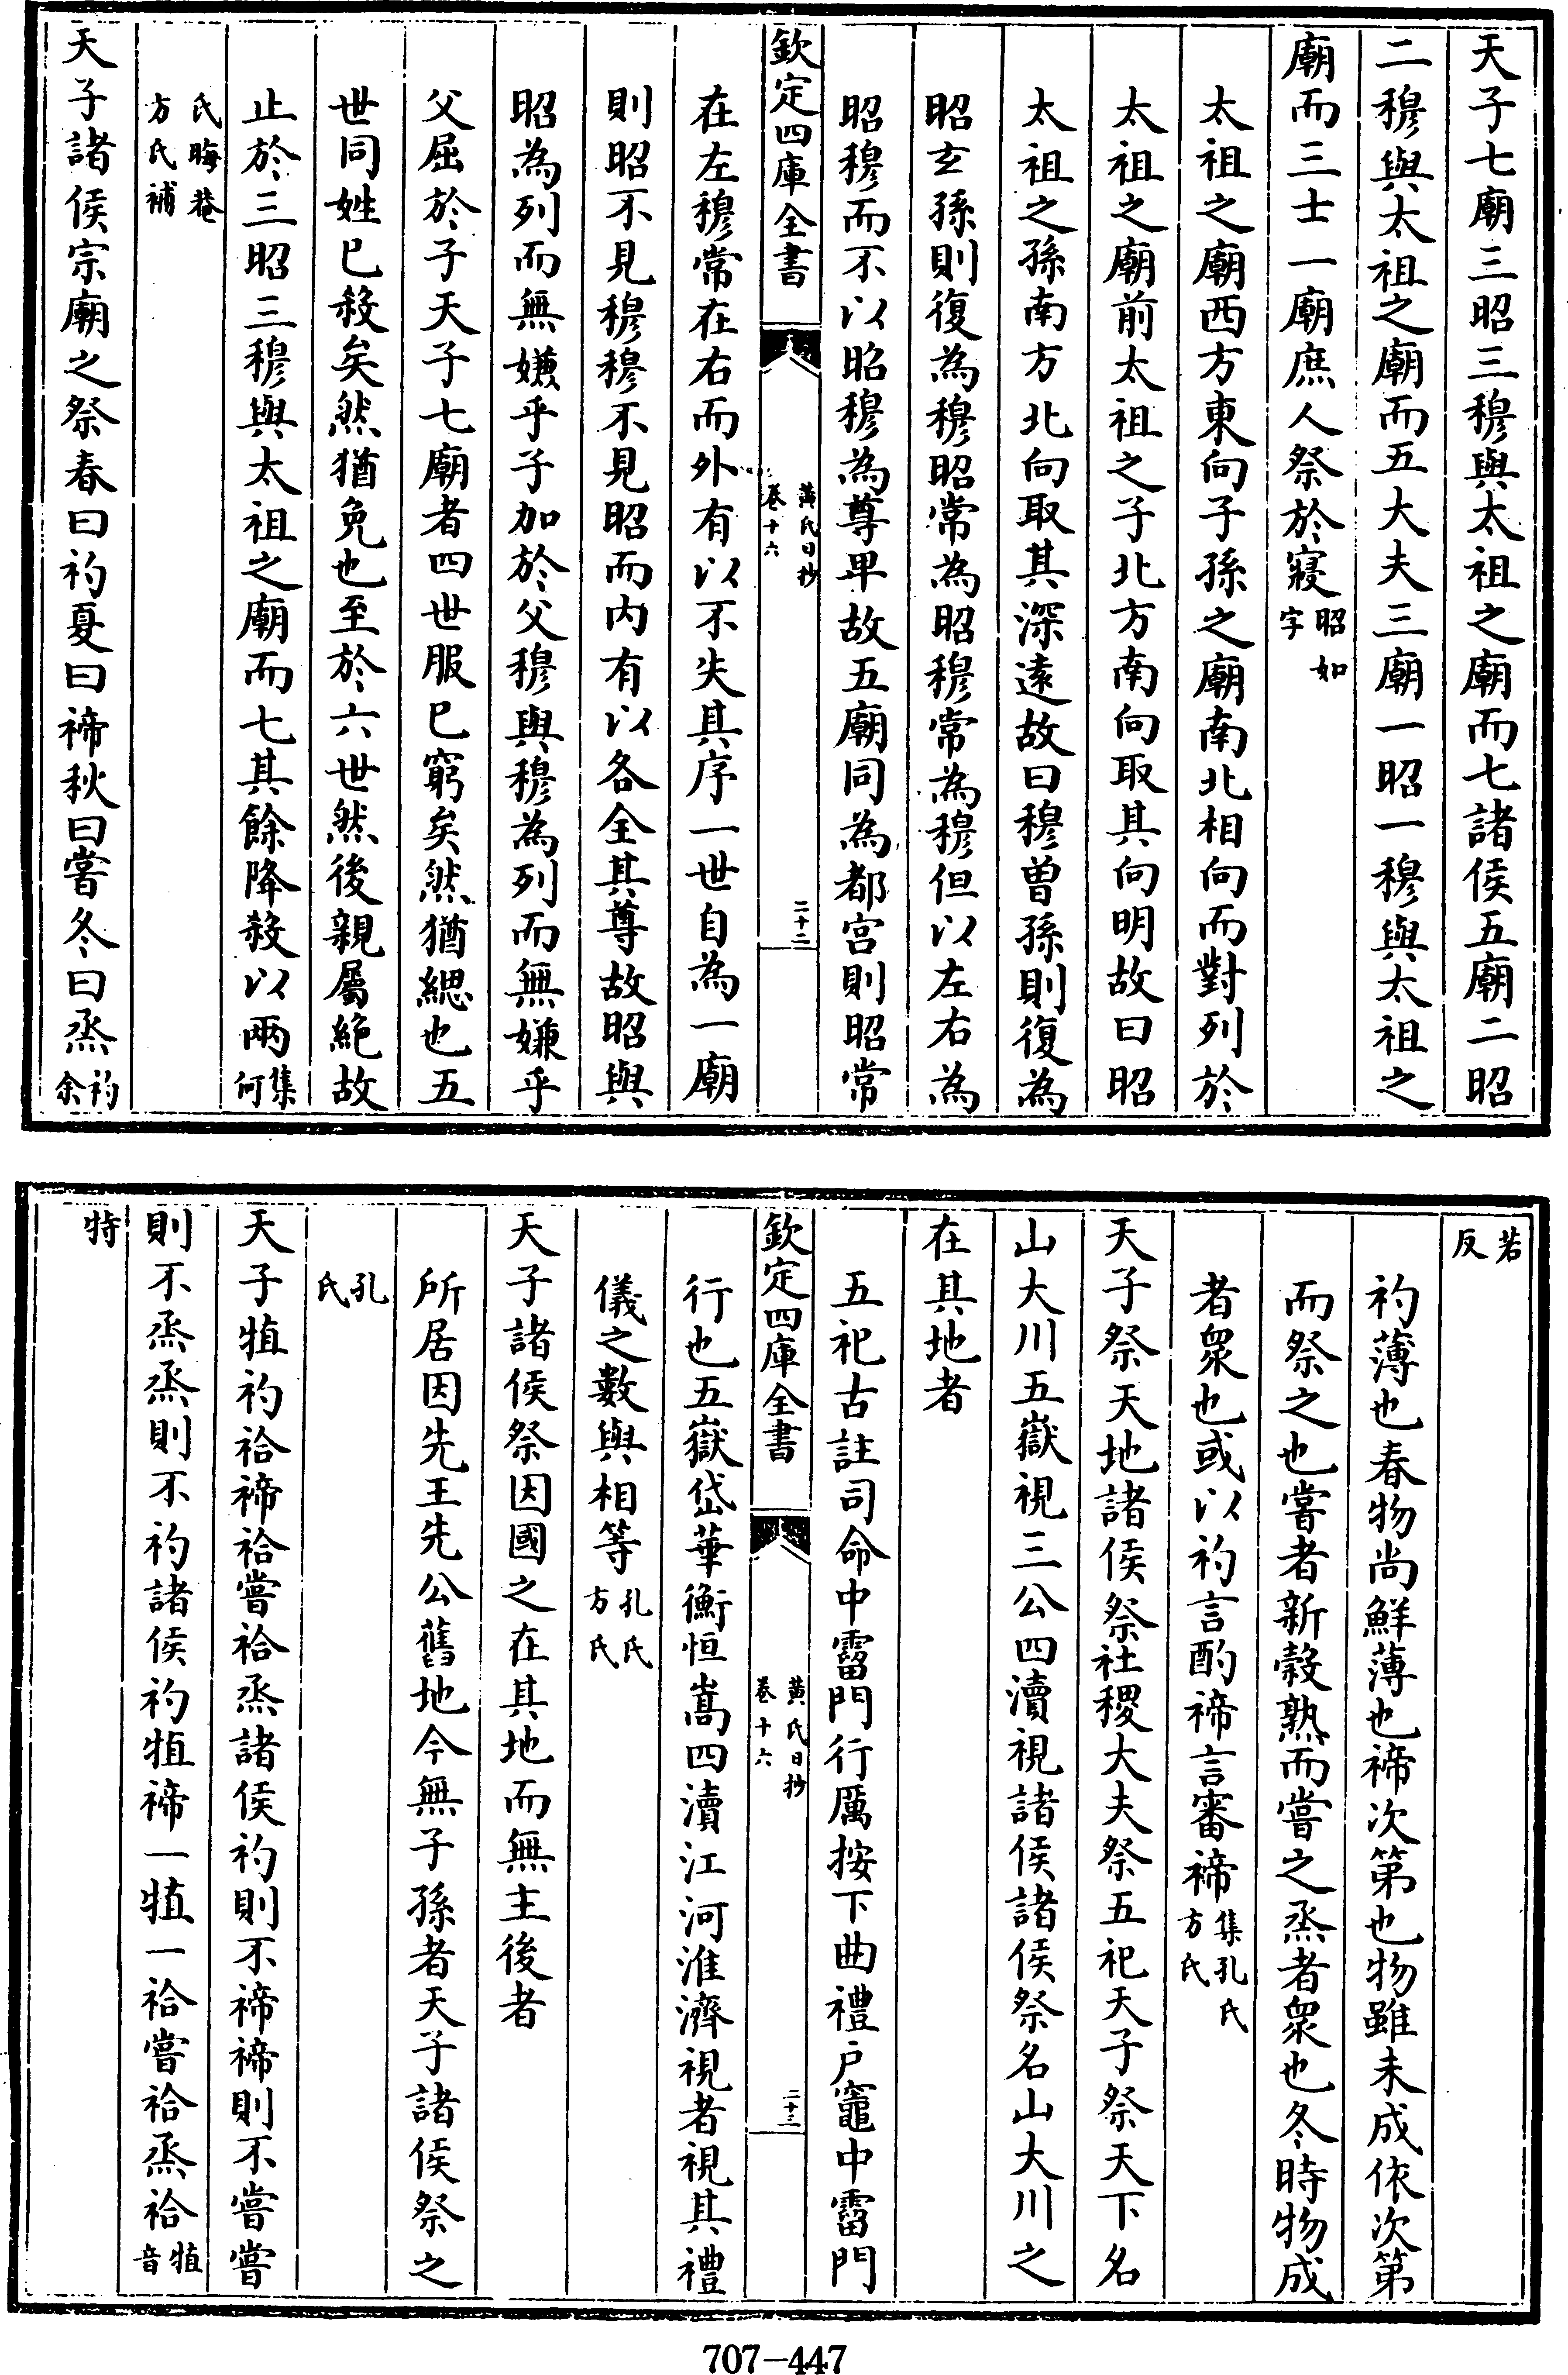 天子七廟三昭三穆與太祖之廟而七諸侯五廟二昭
二穆與太祖之廟而五大夫三廟一昭一穆與太祖之
廟而三士一廟庶人祭於寢昭如
字
太祖之廟西方東向子孫之廟南北相向而對列於
太祖之廟前太祖之子北方南向取其向明故曰昭
太祖之孫南方北向取其深遠故曰穆曽孫則復為
昭𤣥孫則復為穆昭常為昭穆常為穆但以左右為
昭穆而不以昭穆為尊卑故五廟同為都宫則昭常
欽定四庫全書
黄氏日抄
卷十六
二十二
在左穆常在右而外有以不失其序一世自為一廟
則昭不見穆穆不見昭而内有以各全其尊故昭與
昭為列而無嫌乎子加於父穆與穆為列而無嫌乎
父屈於子天子七廟者四世服已窮矣然猶緦也五
世同姓已殺矣然猶免也至於六世然後親屬絶故
止於三昭三穆與太祖之廟而七其餘降殺以兩集
何
氏晦菴
方氏補
天子諸侯宗廟之祭春曰礿夏曰禘秋曰嘗冬曰烝礿
余
若
反
礿薄也春物尚鮮薄也禘次第也物雖未成依次第
而祭之也嘗者新榖熟而嘗之烝者衆也冬時物成
者衆也或以礿言酌禘言審禘集孔氏
方氏
天子祭天地諸侯祭社稷大夫祭五祀天子祭天下名
山大川五嶽視三公四瀆視諸侯諸侯祭名山大川之
在其地者
五祀古註司命中霤門行厲按下曲禮户竈中霤門
欽定四庫全書
黄氏日抄
卷十六
二十三
行也五嶽岱華衡恒嵩四瀆江河淮濟視者視其禮
儀之數與相等孔氏
方氏
天子諸侯祭因國之在其地而無主後者
所居因先王先公舊地今無子孫者天子諸侯祭之
孔
氏
天子犆礿祫禘祫嘗祫烝諸侯礿則不禘禘則不嘗嘗
則不烝烝則不礿諸侯礿犆禘一犆一祫嘗祫烝祫犆
音
特
707-447